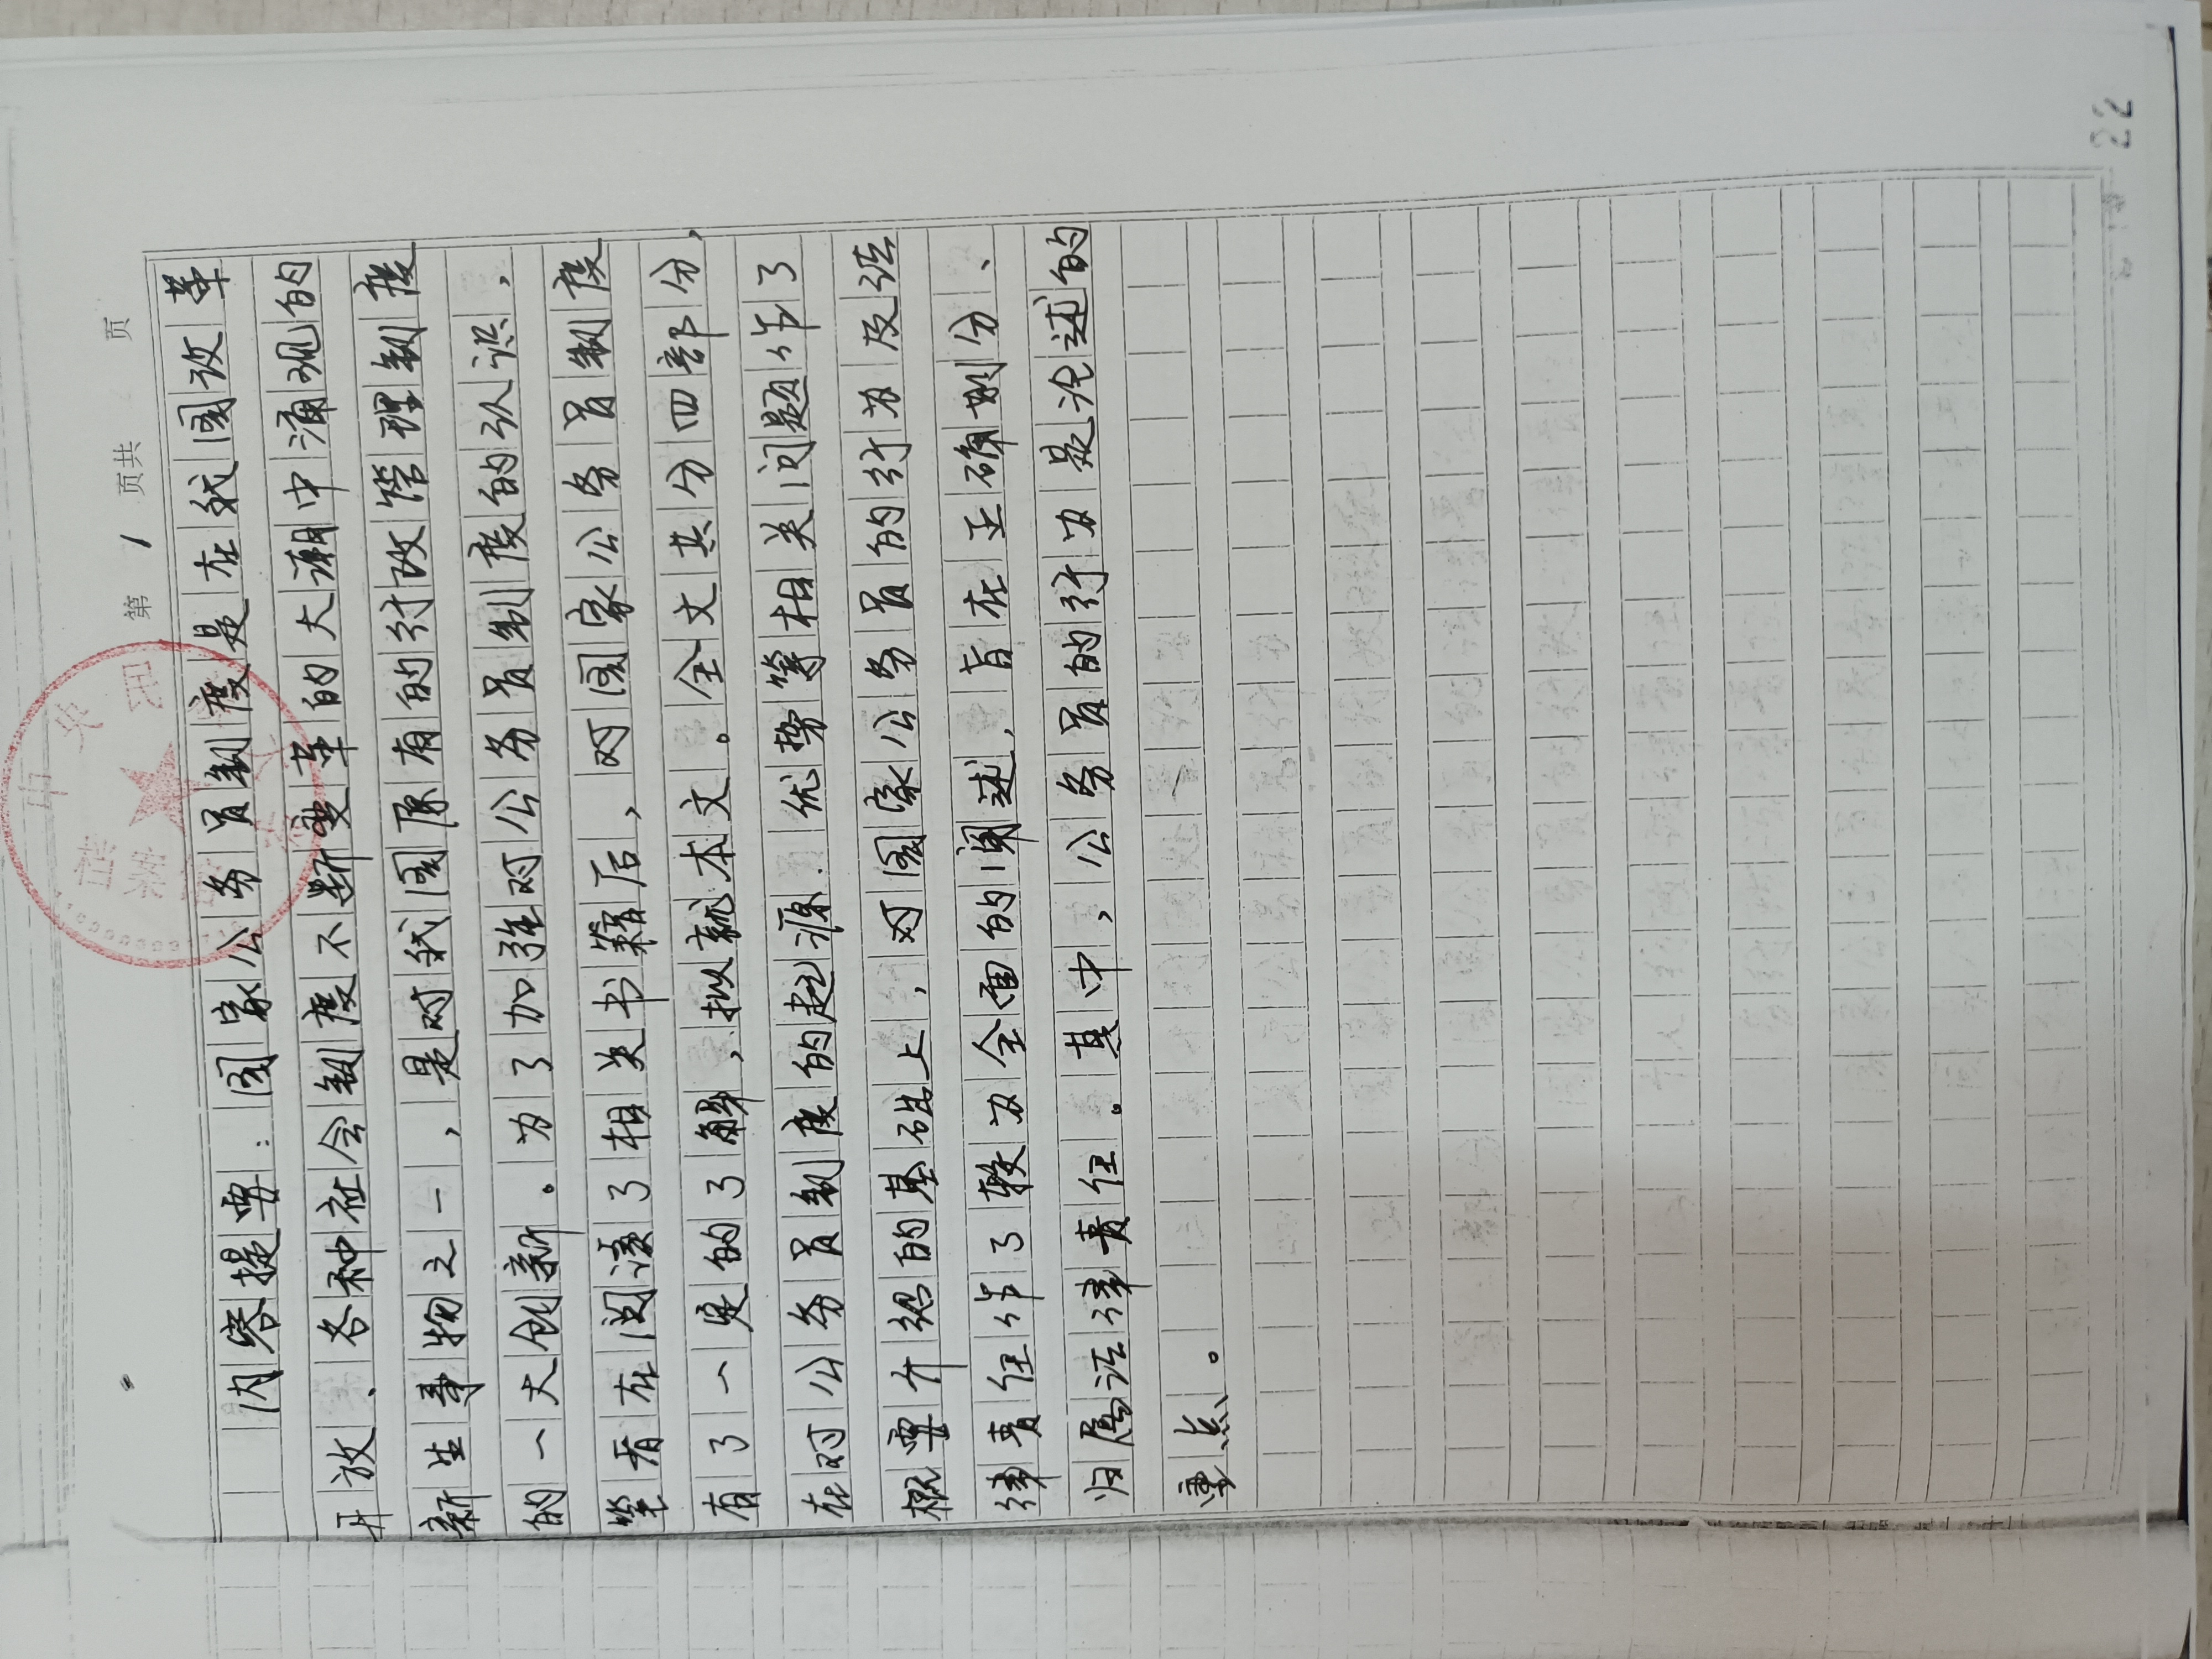 第 1 页共 页
内容提要：国家公务员制度是在我国改革
开放、各种社会制度不断变革的大潮中涌现的
新生事物之一，是对我国原有的行政管理制度
的一大创新。为了加强对公务员制度的认识，
笔者在阅读了相关书籍后，对国家公务员制度
有了一定的了解，拟就本文。全文共分四部分，
在对公务员制度的起源、优势等相关问题作了
概要介绍的基础上，对国家公务员的行为及法
律责任作了较为全面的阐述，旨在正确划分、
归属法律责任。其中，公务员的行为是论述的
重点。
22